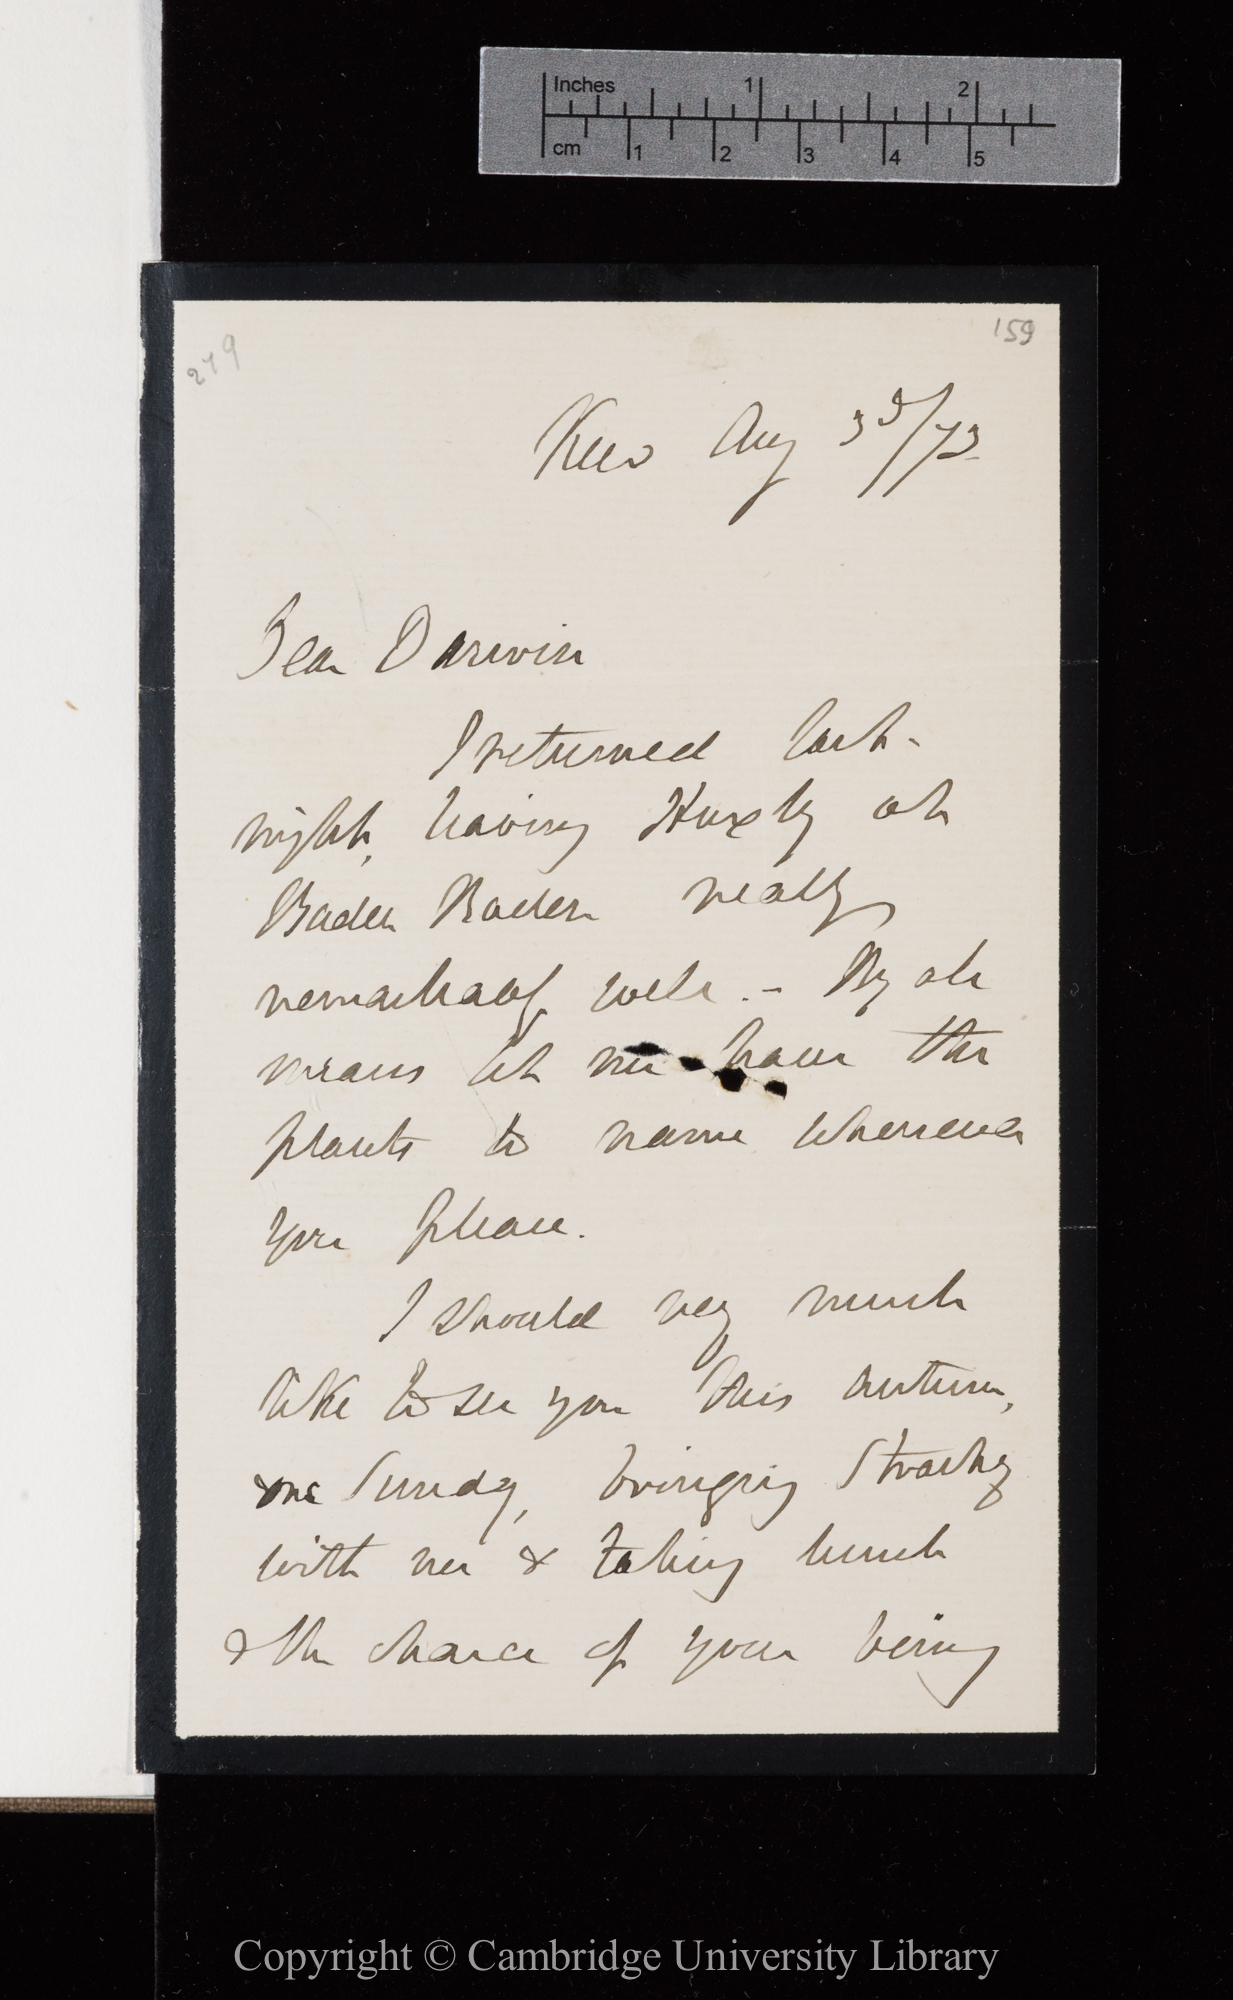 Inches 1 2
cm 1 2 3 4 5
279
159
Kew Aug 3d/73.
Dear Darwin
I returned last
night, having Huxley at
Baden Baden really
remarkably well. — By all
means let me have the
plants to name whenever
you please.
I should very much
like to see you this autumn,
one Sunday, bringing Strachey
with me & taking lunch
& the chance of your being
Copyright © Cambridge University Library